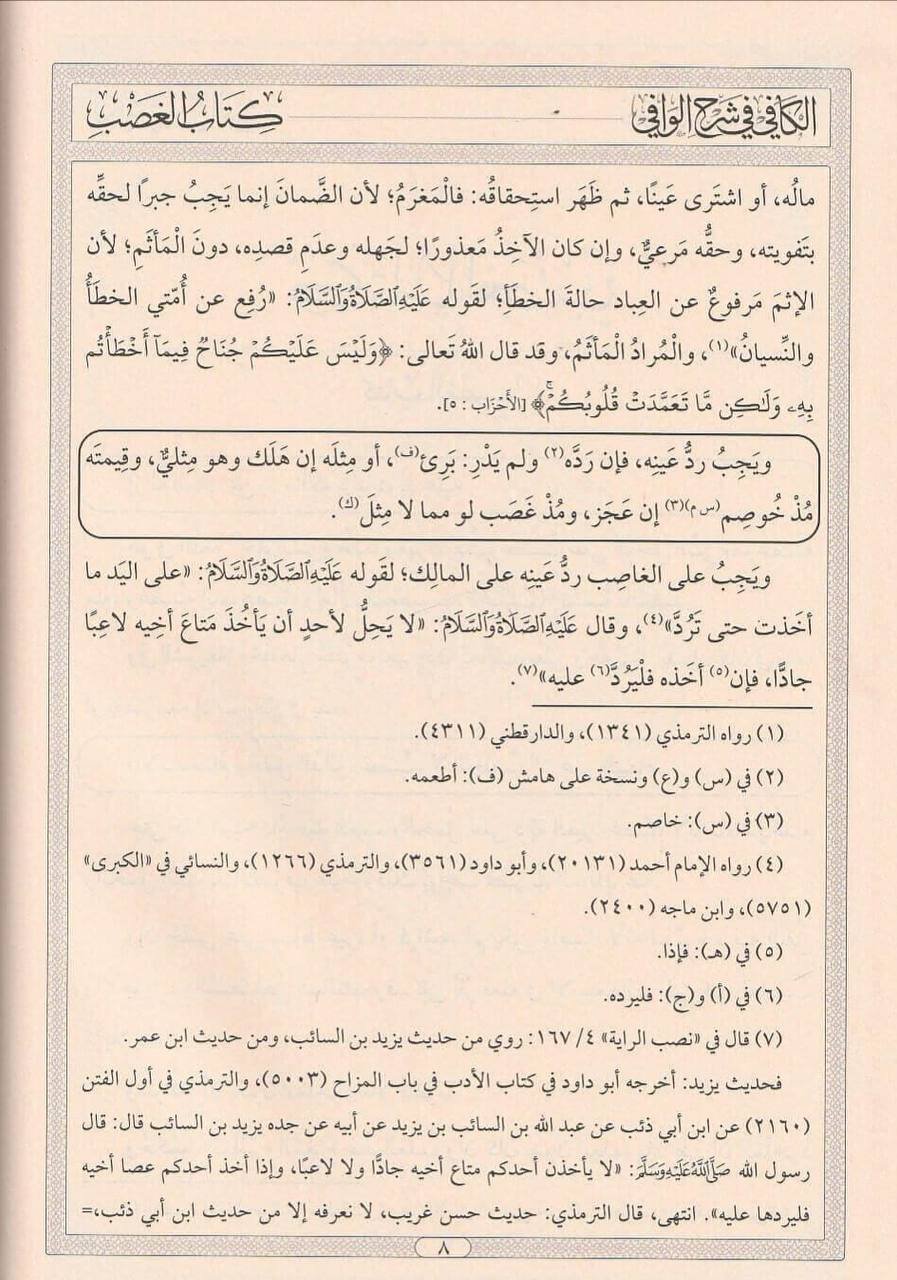 الكافي في شرح الوافي
كتاب الغصب
مالُه، أو اشتَرى عَينًا، ثم ظَهَر استِحقاقُه: فالْمَغرَمُ؛ لأن الضَّمانَ إنما يَجِبُ جبرًا لحقِّه
بتَفويته، وحقُّه مَرعيٌّ، وإن كان الآخِذُ مَعذورًا؛ لجَهله وعدَمِ قصدِه، دونَ الْمَأثَمِ؛ لأن
الإثمَ مَرفوعٌ عن العِباد حالةَ الخطَأِ؛ لقَوله عَلَيْهِ الصَّلَاةُ وَالسَّلَامُ: «رُفِع عن أمّتي الخطَأُ
والنِّسيانُ»(١)، والْمُرادُ الْمَأثَمُ، وقد قال اللهُ تَعالى: ﴿وَلَيْسَ عَلَيْكُمْ جُنَاحٌ فِيمَآ أَخْطَأْتُم
بِهِۦ وَلَٰكِن مَّا تَعَمَّدَتْ قُلُوبُكُمْ ۚ﴾ [الأَحْزَاب : ٥].
ويَجِبُ ردُّ عَينِه، فإن رَدَّه(٢) ولم يَدْرِ: بَرِئ(ف)، أو مِثلَه إن هَلَك وهو مِثليٌّ، وقِيمتَه
مُذْ خُوصِم(س م)(٣) إن عَجَز، ومُذْ غَصَب لو مما لا مِثلَ(ك).
ويَجِبُ على الغاصِب ردُّ عَينِه على المالِك؛ لقَوله عَلَيْهِ الصَّلَاةُ وَالسَّلَامُ: «على اليَد ما
أخَذت حتى تَرُدَّ»(٤)، وقال عَلَيْهِ الصَّلَاةُ وَالسَّلَامُ: «لا يَحِلُّ لأحدٍ أن يَأخُذَ مَتاعَ أخيه لاعِبًا
جادًّا، فإن(٥) أخَذه فلْيَرُدَّ(٦) عليه»(٧).
(١) رواه الترمذي (١٣٤١)، والدارقطني (٤٣١١).
(٢) في (س) و(ع) ونسخة على هامش (ف): أطعمه.
(٣) في (س): خاصم.
(٤) رواه الإمام أحمد (٢٠١٣١)، وأبو داود (٣٥٦١)، والترمذي (١٢٦٦)، والنسائي في «الكبرى»
(٥٧٥١)، وابن ماجه (٢٤٠٠).
(٥) في (هـ): فإذا.
(٦) في (أ) و(ج): فليرده.
(٧) قال في «نصب الراية» ٤/ ١٦٧: روي من حديث يزيد بن السائب، ومن حديث ابن عمر.
فحديث يزيد: أخرجه أبو داود في كتاب الأدب في باب المزاح (٥٠٠٣)، والترمذي في أول الفتن
(٢١٦٠) عن ابن أبي ذئب عن عبد الله بن السائب بن يزيد عن أبيه عن جده يزيد بن السائب قال: قال
رسول الله صَلَّى اللَّهُ عَلَيْهِ وَسَلَّمَ: «لا يأخذن أحدكم متاع أخيه جادًّا ولا لاعبًا، وإذا أخذ أحدكم عصا أخيه
فليردها عليه». انتهى، قال الترمذي: حديث حسن غريب، لا نعرفه إلا من حديث ابن أبي ذئب،=
٨